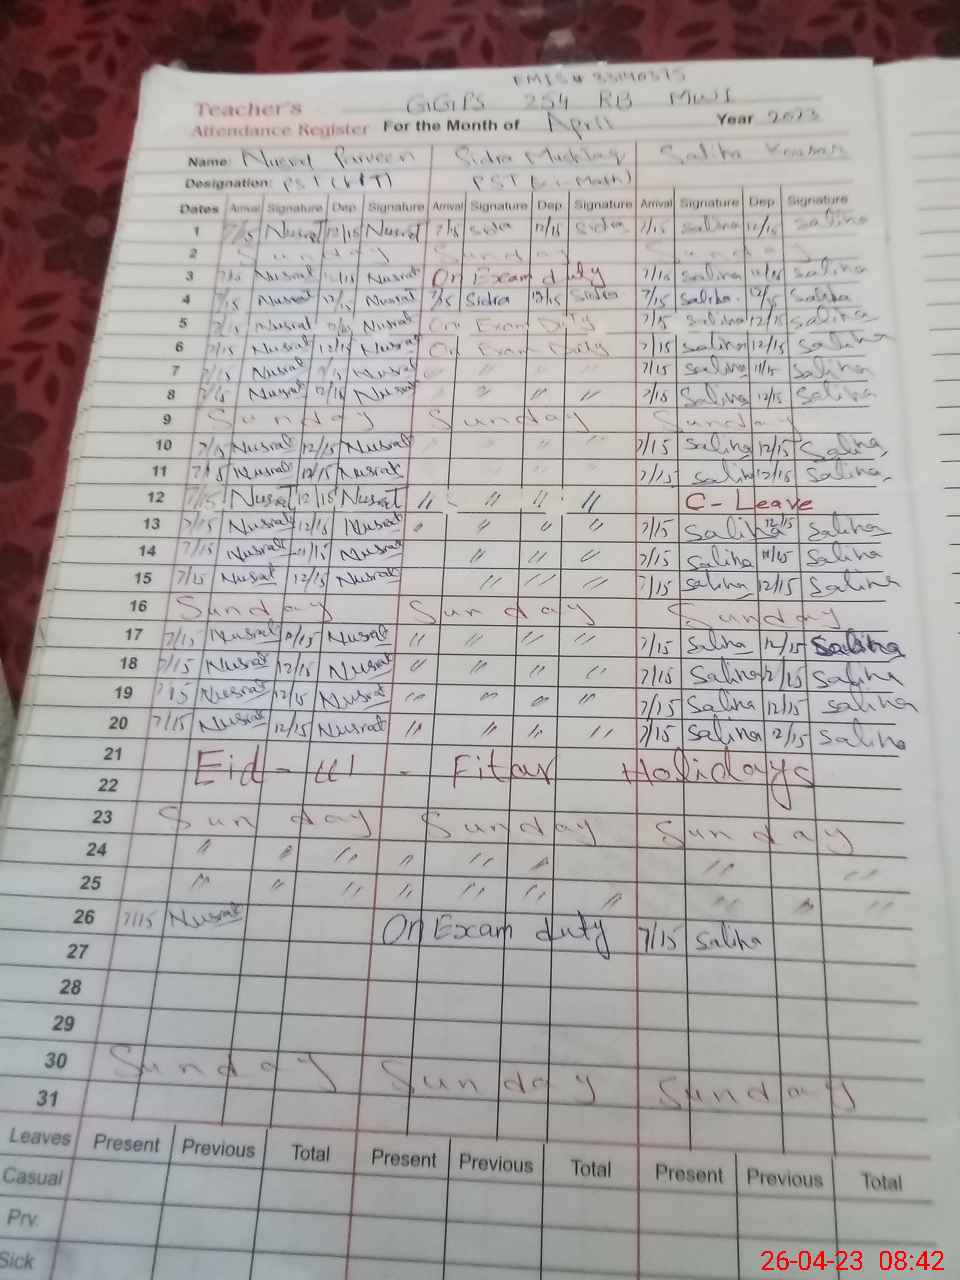 EMIS#
GGPS 254 RB MWI
Teacher's
Attendance Register For the Month of April Year 2023
Name: Nusrat Parveen Sidra Mushtaq Saliha
Designation: PST PST
Dates Arrival Signature Dep Signature Arrival Signature Dep Signature Arrival Signature Dep Signature
1 7/15 Nusrat 12/15 Nusrat 7/15 Sidra 12/15 Sidra 7/15 Saliha 12/15 Saliha
2 Sunday Sunday Sunday
3 Nusrat Nusrat On Exam duty 7/15 Saliha 12/15 Saliha
4 7/15 Nusrat 12/15 Nusrat 7/15 Sidra 12/15 Sidra 7/15 Saliha 12/15 Saliha
5 7/15 Nusrat Nusrat On Exam Duty 7/15 Saliha 12/15 Saliha
6 7/15 Nusrat 12/15 Nusrat On Exam Duty 7/15 Saliha 12/15 Saliha
7 7/15 Nusrat Nusrat " " " 7/15 Saliha 11/15 Saliha
8 7/15 Nusrat 12/15 Nusrat " " " 7/15 Saliha 12/15 Saliha
9 Sunday Sunday Sunday
10 7/15 Nusrat 12/15 Nusrat " " 7/15 Saliha 12/15 Saliha
11 7/15 Nusrat 12/15 Nusrat 7/15 Saliha 12/15 Saliha
12 7/15 Nusrat 12/15 Nusrat " " " " C- Leave
13 7/15 Nusrat 12/15 Nusrat " " " " 7/15 Saliha 12/15 Saliha
14 7/15 Nusrat 11/15 Nusrat " " " 7/15 Saliha 11/15 Saliha
15 7/15 Nusrat 12/15 Nusrat " " " 7/15 Saliha 12/15 Saliha
16 Sunday Sunday Sunday
17 7/15 Nusrat 12/15 Nusrat " " " " 7/15 Saliha 12/15 Saliha
18 7/15 Nusrat 12/15 Nusrat " " " " 7/15 Saliha 12/15 Saliha
19 7/15 Nusrat 12/15 Nusrat " " " " 7/15 Saliha 12/15 Saliha
20 7/15 Nusrat 12/15 Nusrat " " " " 7/15 Saliha 12/15 Saliha
21 Eid-ul-Fitar Holidays
22
23 Sunday Sunday Sunday
24 " " " " " " " "
25 " " " " " " " " " "
26 7/15 Nusrat On Exam duty 7/15 Saliha
27
28
29
30 Sunday Sunday Sunday
31
Leaves Present Previous Total Present Previous Total Present Previous Total
Casual
Prv.
Sick
26-04-23 08:42